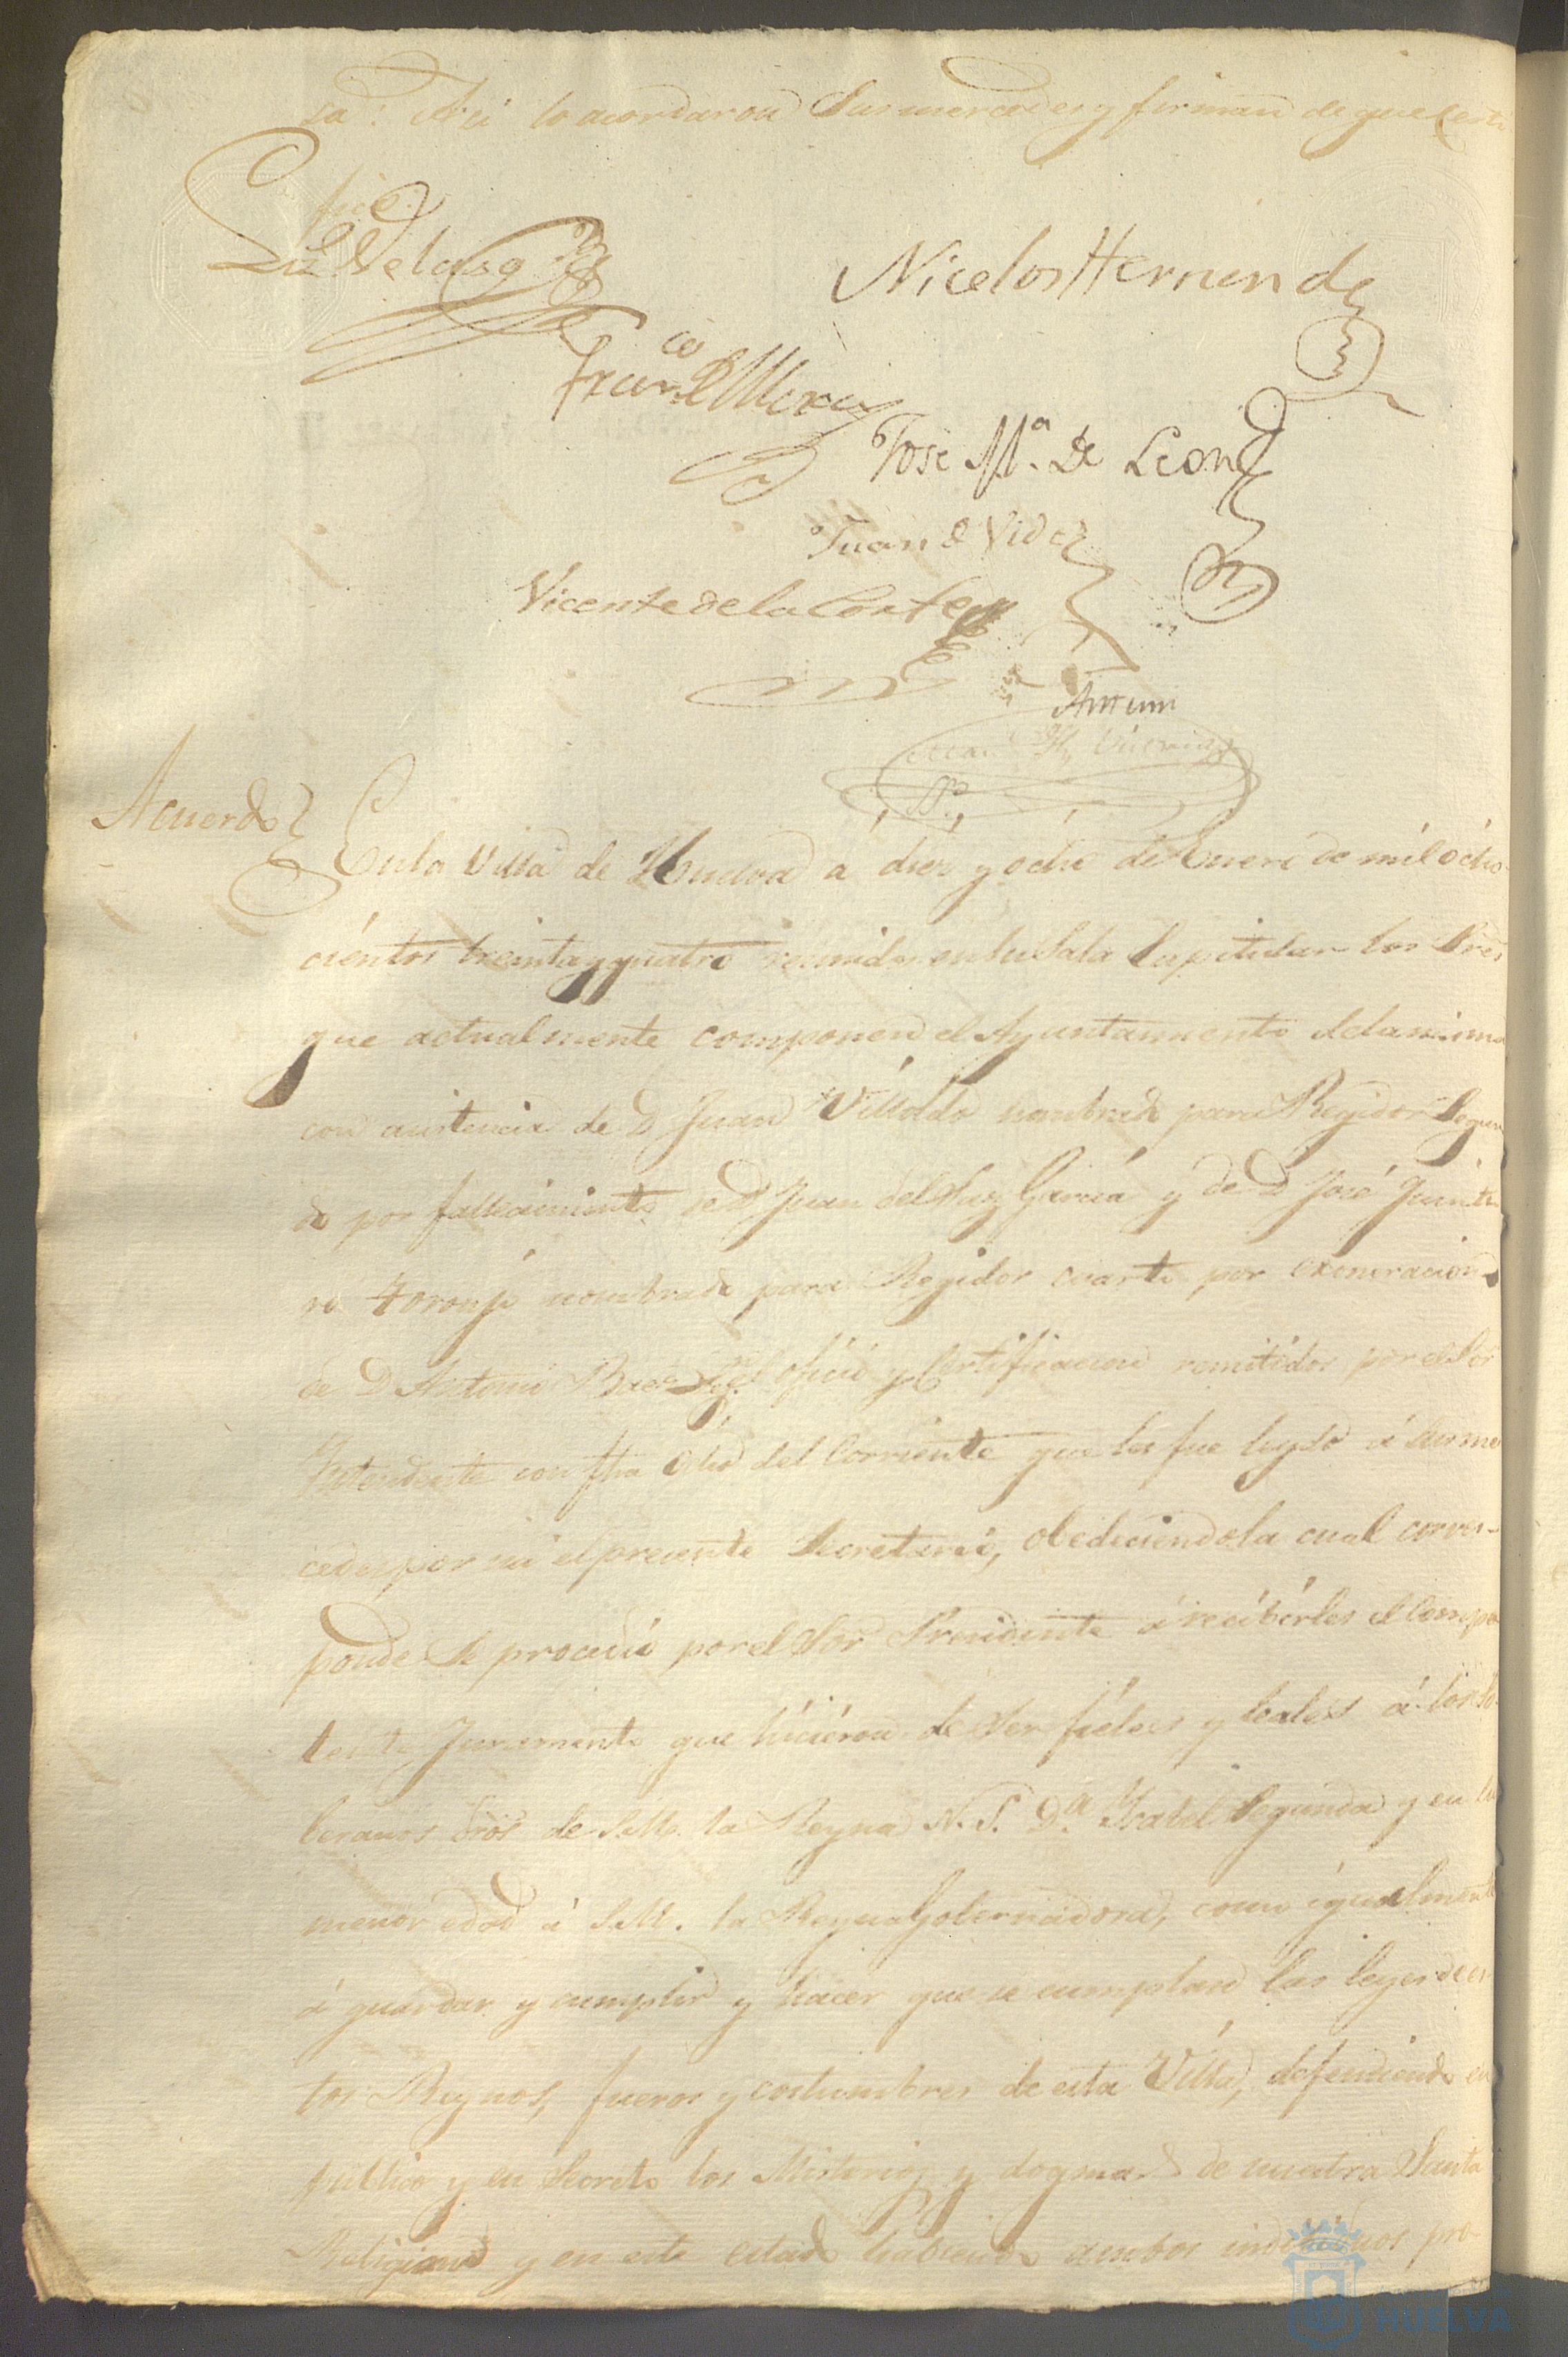 sa: Asi lo acordaron Sus mercedes y firman de que Certi
fico
Nicolos Hernende
Franco
Jose Ma. De Leon
Juan de Vides
Vicente de la Corte
Ante mi
Acuerdo
En la Villa de Huelva á diez y ocho de Enero de mil ocho
cientos treinta y quatro reunidos en su Sala Capitular los Sres
que actualmente componen el Ayuntamiento de la misma
con asistencia de D Juan Villoldo nombrado para Regidor Segun
do por fallecimiento de D Juan del Paz García y de D José Quinte
ro Toronjo nombrado para Regidor cuarto por exoneracion
de D Antonio Baez oficio y Certificacion remitidos por el Sor
Intendente con fha ocho del Corriente que les fue leydo á sus mer
cedes por mi el presente Secretario, obedeciendola cual corres-
ponde se procedió por el Sor Presidente á recibirles el Compe
tente Juramento que hicieron de ser fieles y leales á los So
beranos dros de S.M. la Reyna N.S. Da. Ysabel Segunda y en su
menor edad á S.M. la Reyna Gobernadora, como igualmente
á guardar y cumplir y hacer que se cumplan las leyes de es
tos Reynos, fueros y costumbres de esta Villa, defendiendo en
publico y en Secreto los Misterios y dogmas de nuestra Santa
Religion y en este estado habiendo ambos individuos pro-
HUELVA